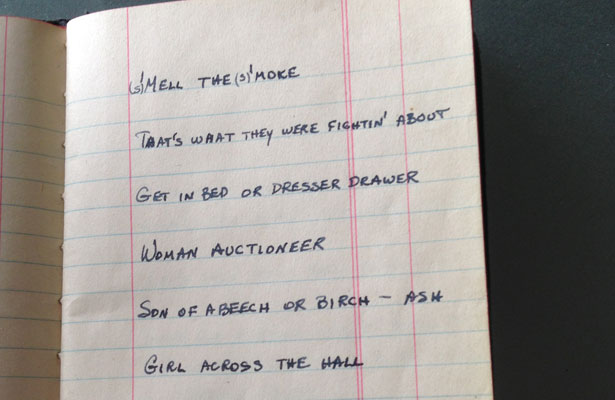 (s)'MELL THE (s)'MOKE
THAT'S WHAT THEY WERE FIGHTIN' ABOUT
GET IN BED OR DRESSER DRAWER
WOMAN AUCTIONEER
SON OF A BEECH OR BIRCH – ASH
GIRL ACROSS THE HALL